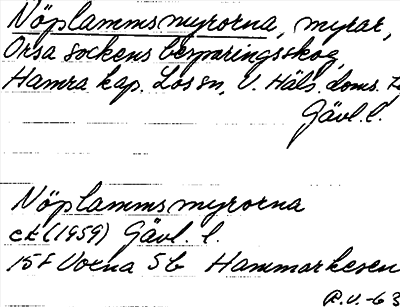 Nöplammsmyrorna, myrar,
Orsa sockens besparingsskog,
Hamra kap. Los sn, V. Häls. doms.
Gävl. l.
Nöplammsmyrorna
ek (1959) Gävl. l.
15F Voxna 5b Hammarkesen
R.U. -63